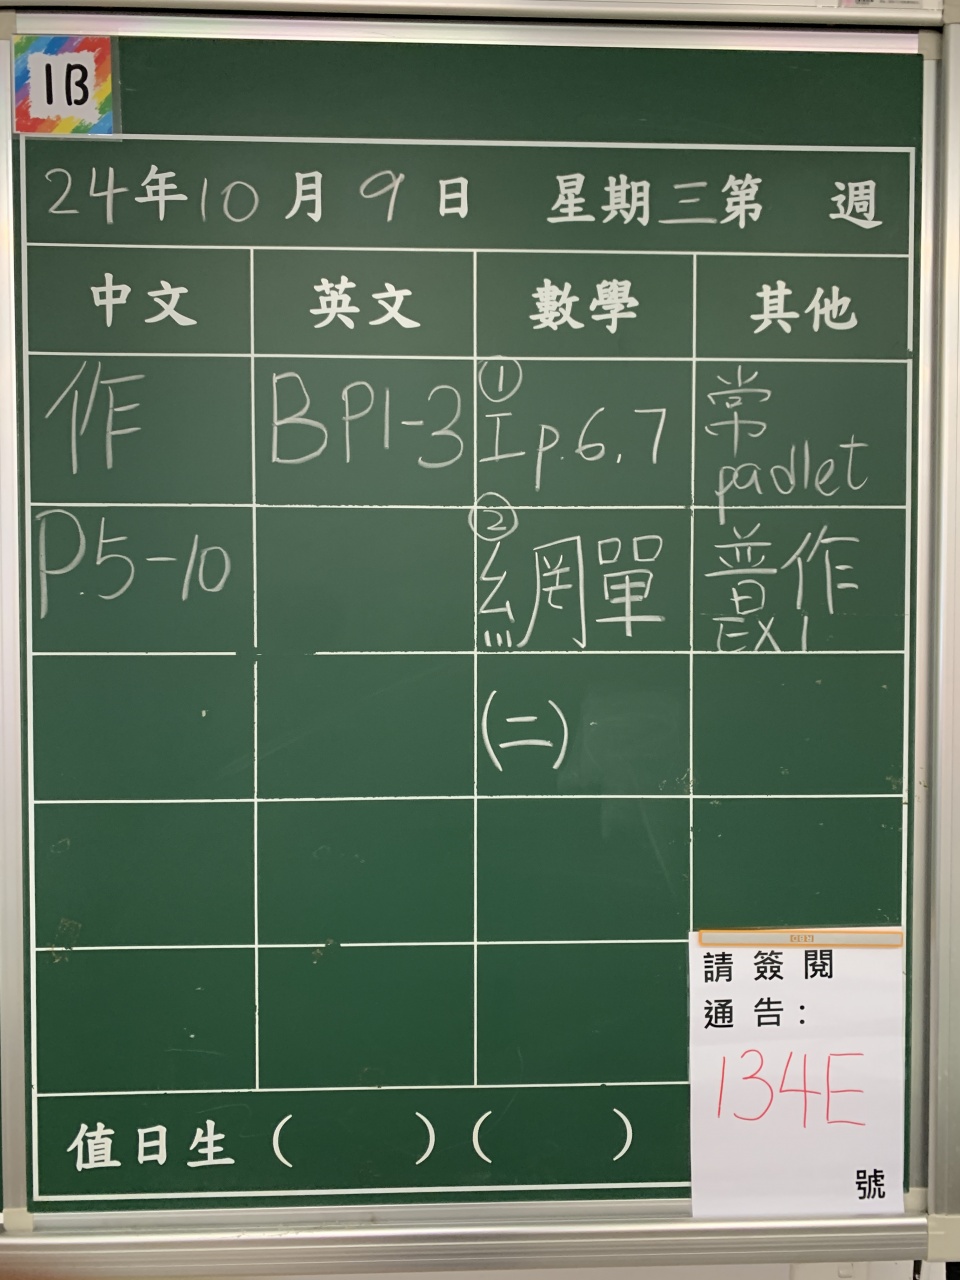 1B
24年10月9日 星期三第 週
中文 英文 數學 其他
作
P.5-10
BP1-3
①
I p.6,7
②
網單
(二)
常
padlet
普作
EX1
請簽閱
通告:
134E
號
值日生( )( )